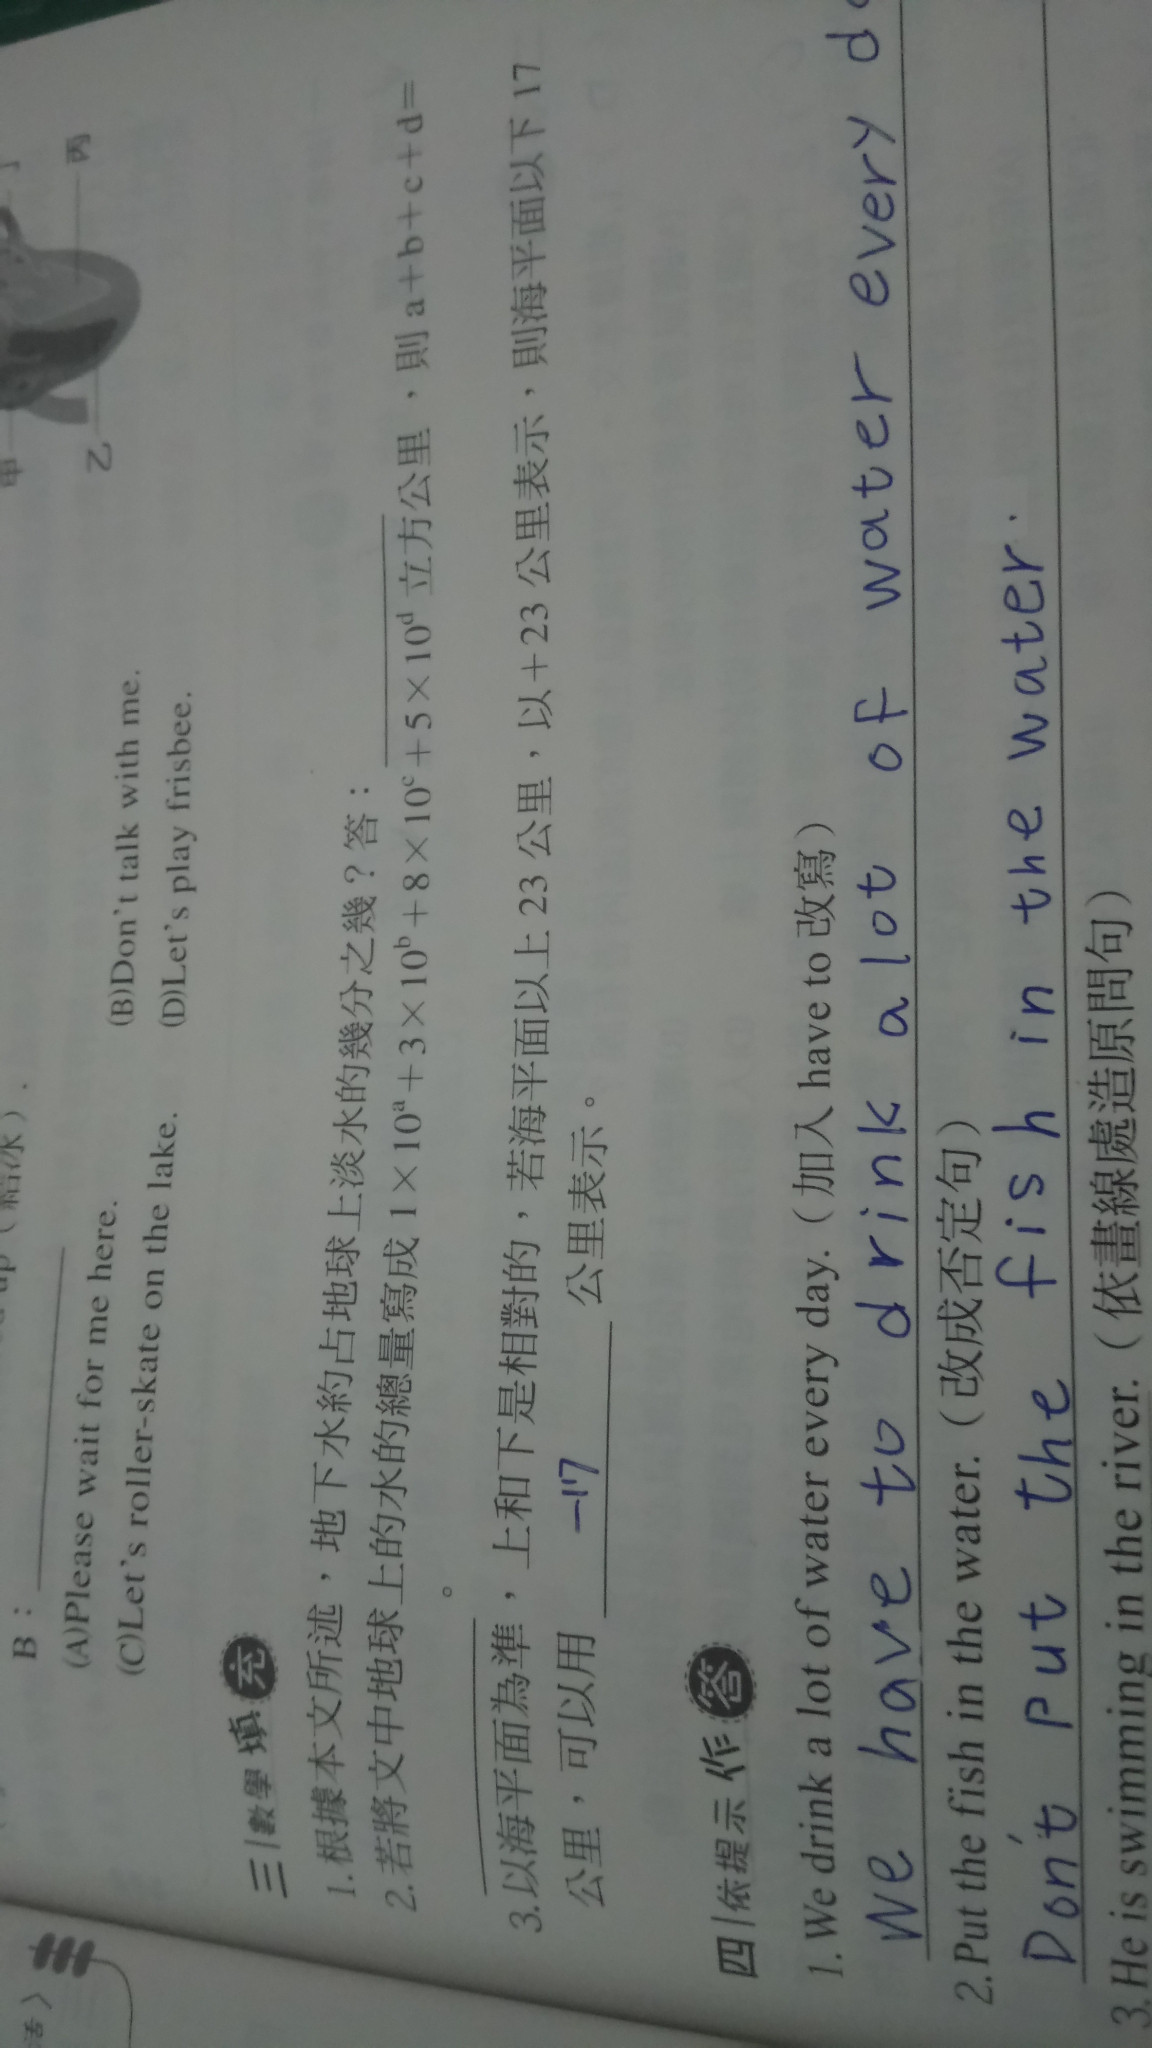 丙
甲
乙
B：
(A)Please wait for me here.
(B)Don't talk with me.
(C)Let's roller-skate on the lake.
(D)Let's play frisbee.
三 數學填充
1.根據本文所述，地下水約占地球上淡水的幾分之幾？答：
2.若將文中地球上的水的總量寫成1×10ᵃ＋3×10ᵇ＋8×10ᶜ＋5×10ᵈ 立方公里，則a＋b＋c＋d＝
。
3.以海平面為準，上和下是相對的，若海平面以上23公里，以＋23公里表示，則海平面以下17
公里，可以用 －17 公里表示。
四 依提示作答
1. We drink a lot of water every day.（加入 have to 改寫）
We have to drink a lot of water every
2. Put the fish in the water.（改成否定句）
Don't put the fish in the water.
3. He is swimming in the river.（依畫線處造原問句）